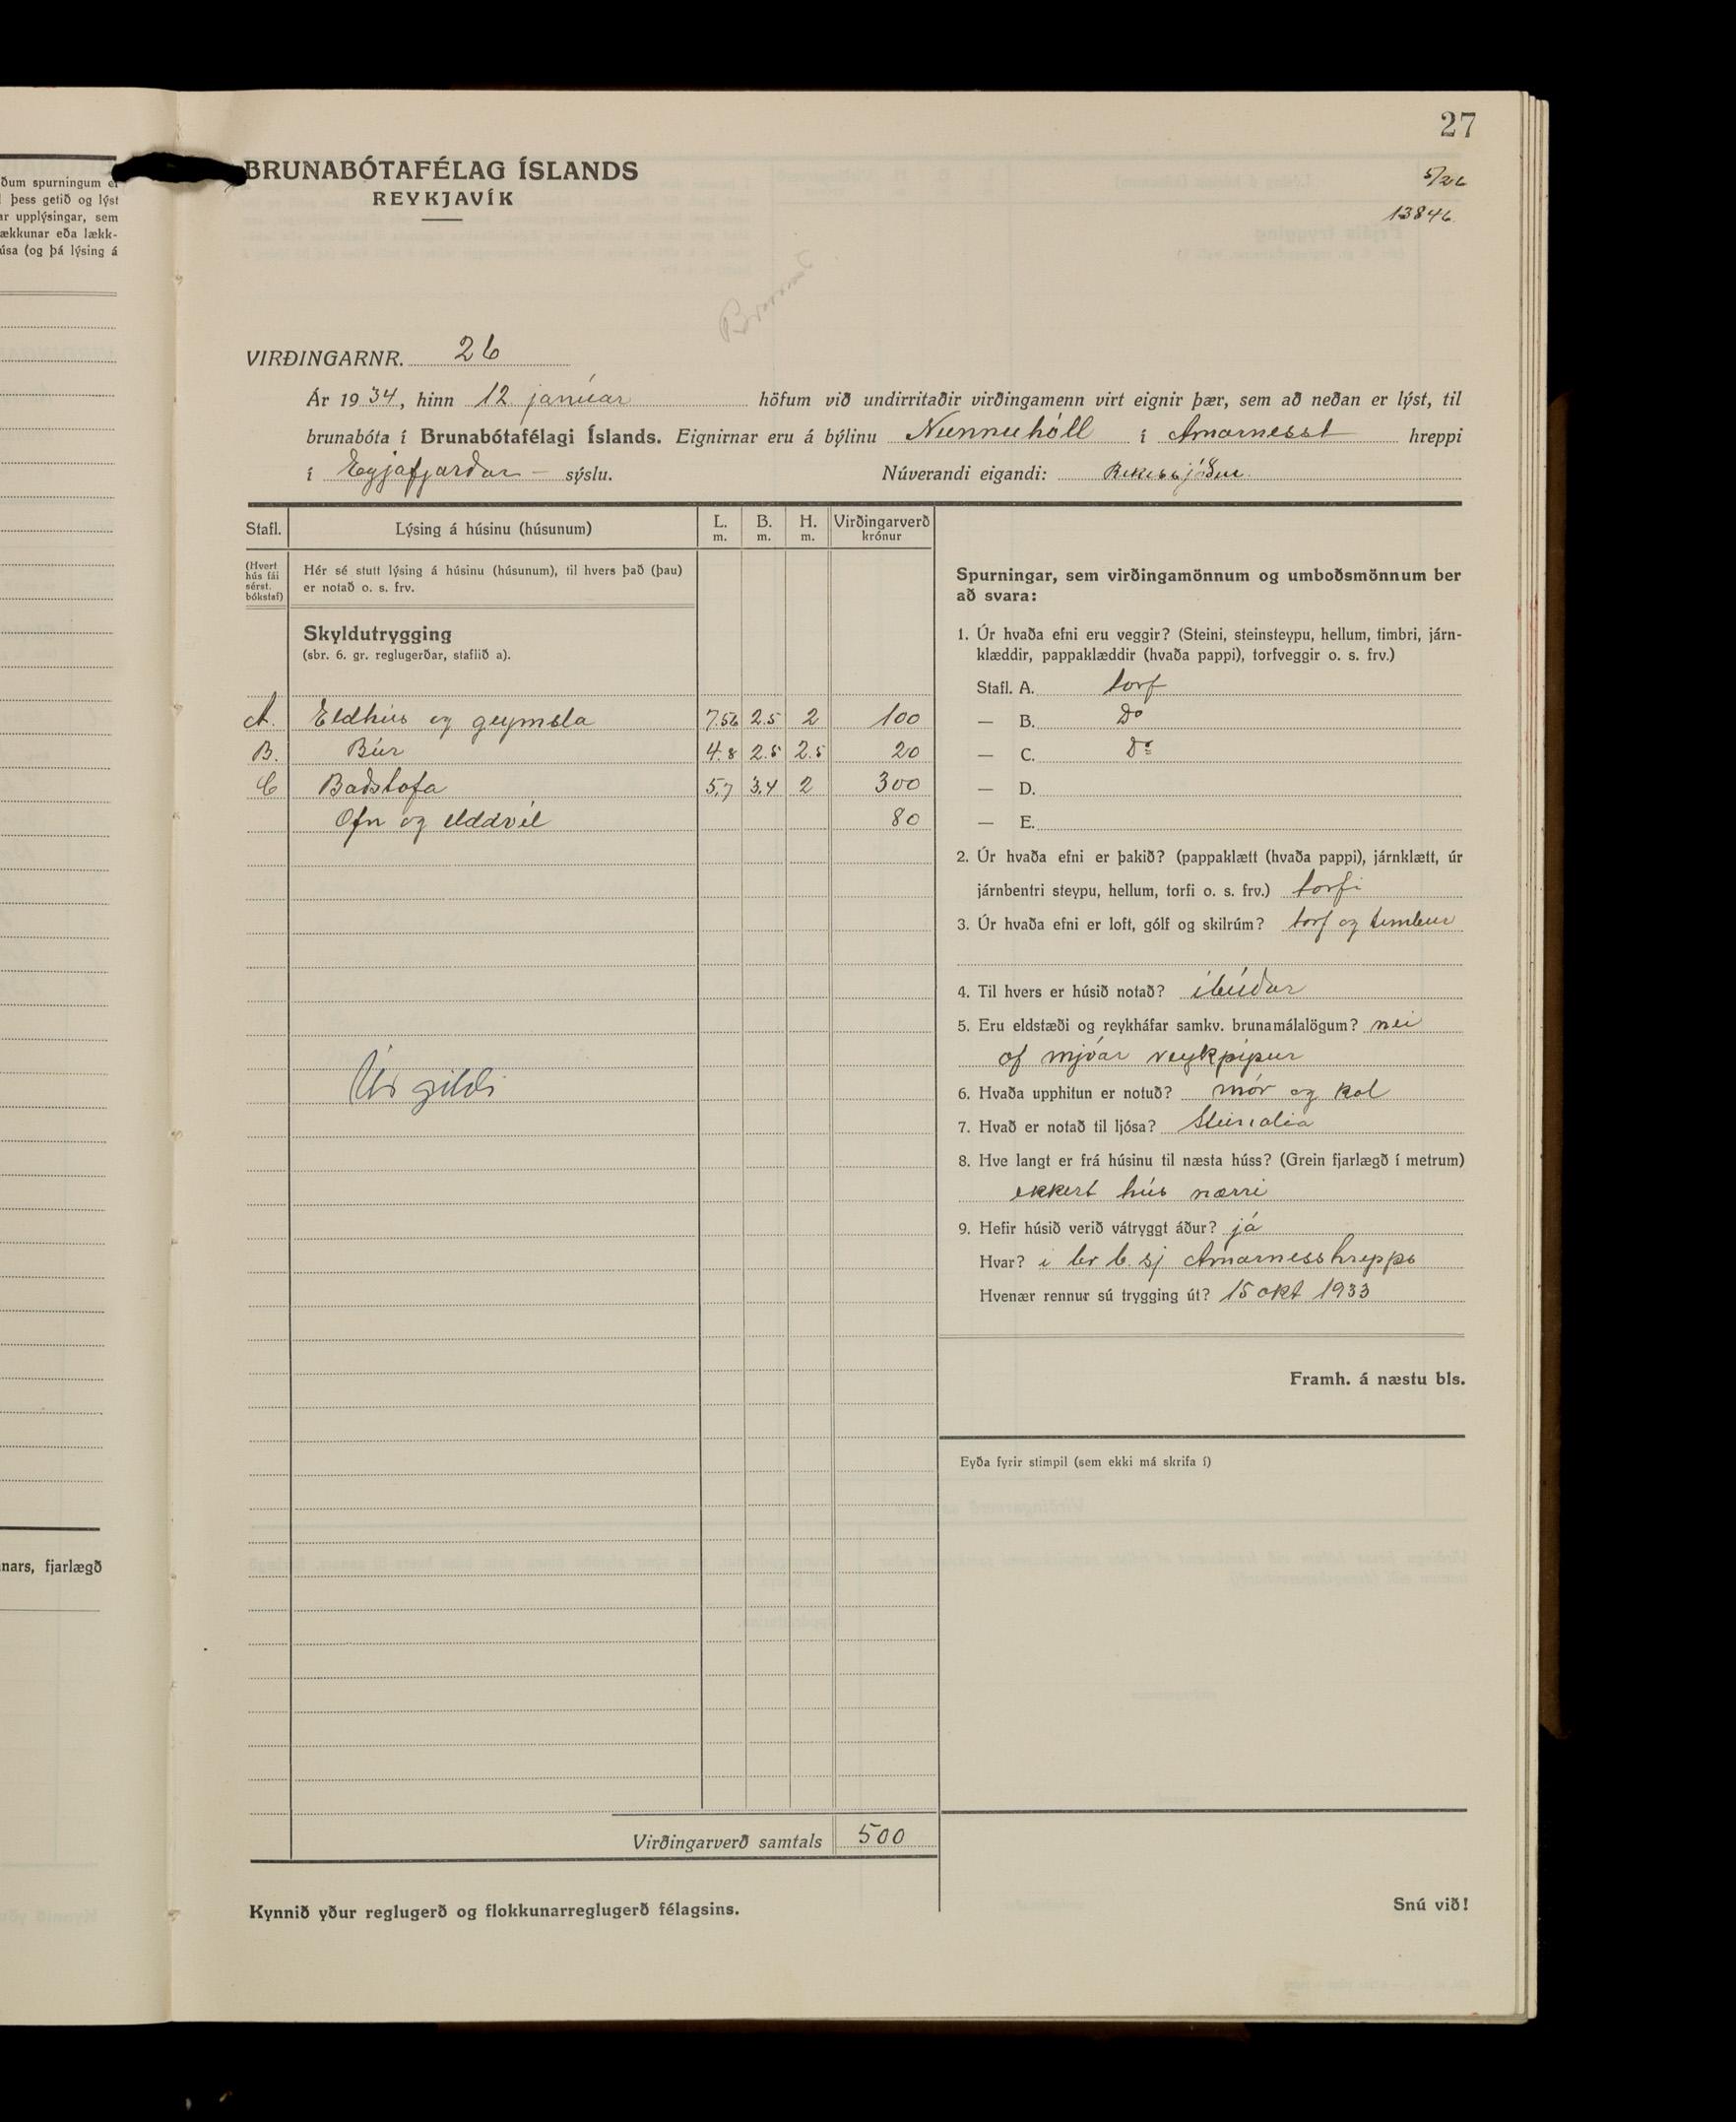 27
BRUNABÓTAFÉLAG ÍSLANDS
REYKJAVÍK
5/26
13846
VIRÐINGARNR. 26
Ár 1934, hinn 12 janúar höfum við undirritaðir virðingamenn virt eignir þær, sem að neðan er lýst, til
brunabóta í Brunabótafélagi Íslands. Eignirnar eru á býlinu Nunnuhóll í Arnarness hreppi
í Eyjafjarðar – sýslu. Núverandi eigandi:
Stafl. Lýsing á húsinu (húsunum) L. m. B. m. H. m. Virðingarverð krónur
(Hvert hús fái sérst. bókstaf) Hér sé stutt lýsing á húsinu (húsunum), til hvers það (þau)
er notað o. s. frv.
Skyldutrygging
(sbr. 6. gr. reglugerðar, staflið a).
A. Eldhús og geymsla 7.56 2.5 2 100
B. Búr 4.8 2.5 2.5 20
C Baðstofa 5,7 3,4 2 300
Ofn og eldavél 80
Úr gildi
Virðingarverð samtals 500
Kynnið yður reglugerð og flokkunarreglugerð félagsins.
Spurningar, sem virðingamönnum og umboðsmönnum ber
að svara:
1. Úr hvaða efni eru veggir? (Steini, steinsteypu, hellum, timbri, járn-
klæddir, pappaklæddir (hvaða pappi), torfveggir o. s. frv.)
Stafl. A. torf
— B. Do
— C. Do
— D.
— E.
2. Úr hvaða efni er þakið? (pappaklætt (hvaða pappi), járnklætt, úr
járnbentri steypu, hellum, torfi o. s. frv.) torfi
3. Úr hvaða efni er loft, gólf og skilrúm? torf og timbur
4. Til hvers er húsið notað? íbúðar
5. Eru eldstæði og reykháfar samkv. brunamálalögum? nei
of mjóar reykpípur
6. Hvaða upphitun er notuð? mór og kol
7. Hvað er notað til ljósa? Steinolía
8. Hve langt er frá húsinu til næsta húss? (Grein fjarlægð í metrum)
ekkert hús nærri
9. Hefir húsið verið vátryggt áður? já
Hvar? í br b. sj Arnarnesshrepps
Hvenær rennur sú trygging út? 15 okt 1933
Framh. á næstu bls.
Eyða fyrir stimpil (sem ekki má skrifa í)
Snú við!
ðum spurningum er
þess getið og lýst
ar upplýsingar, sem
ækkunar eða lækk-
úsa (og þá lýsing á
nars, fjarlægð